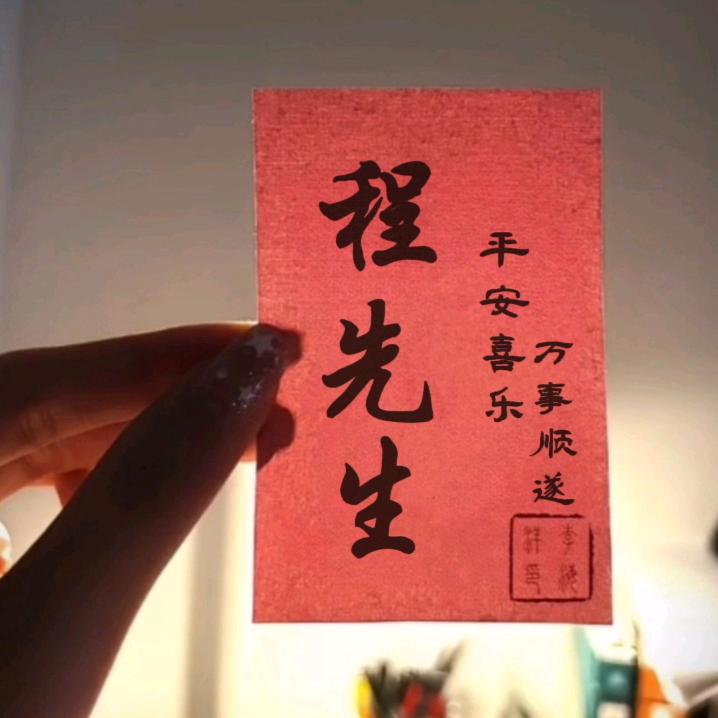 程先生
平安喜乐
万事顺遂